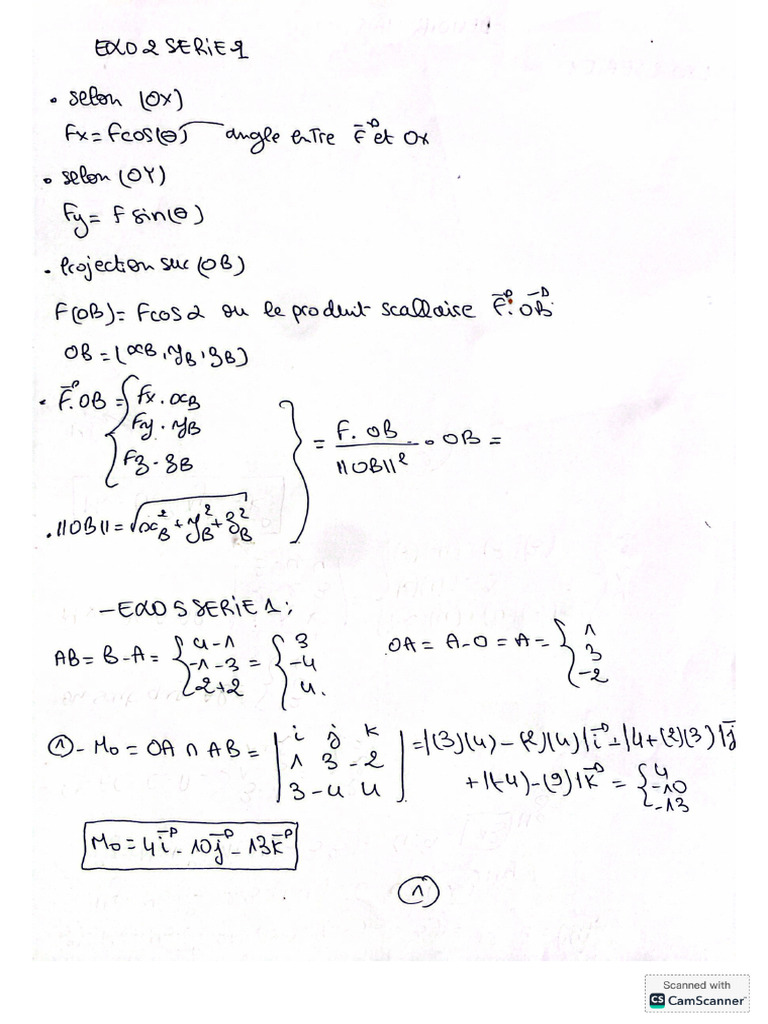 EXO 2 SERIE 1
• selon (OX)
Fx = Fcos(θ) angle entre F et Ox
• selon (OY)
Fy = F sin(θ)
• Projection sur (OB)
F(OB) = Fcos2 ou le produit scallaise F. OB
OB = (xB, yB, zB)
• F.OB = { Fx . xB
Fy . yB
Fz . zB } = F. OB / ||OB||² . OB =
• ||OB|| = √xB² + yB² + zB²
- EXO 5 SERIE 1 ;
AB = B - A = { 4-1 = { 3 OA = A - O = A = { 1
-1-3 -4 3
2+2 4. -2
① - Mo = OA ∩ AB = | i j k | = |(3)(4) - (2)(4)| i + |4+(2)(3)| j
1 3 -2
3 -4 4 + |(-4) - (9)| k = { 4
-10
-13
Mo = 4i - 10j - 13k
①
Scanned with
CS CamScanner